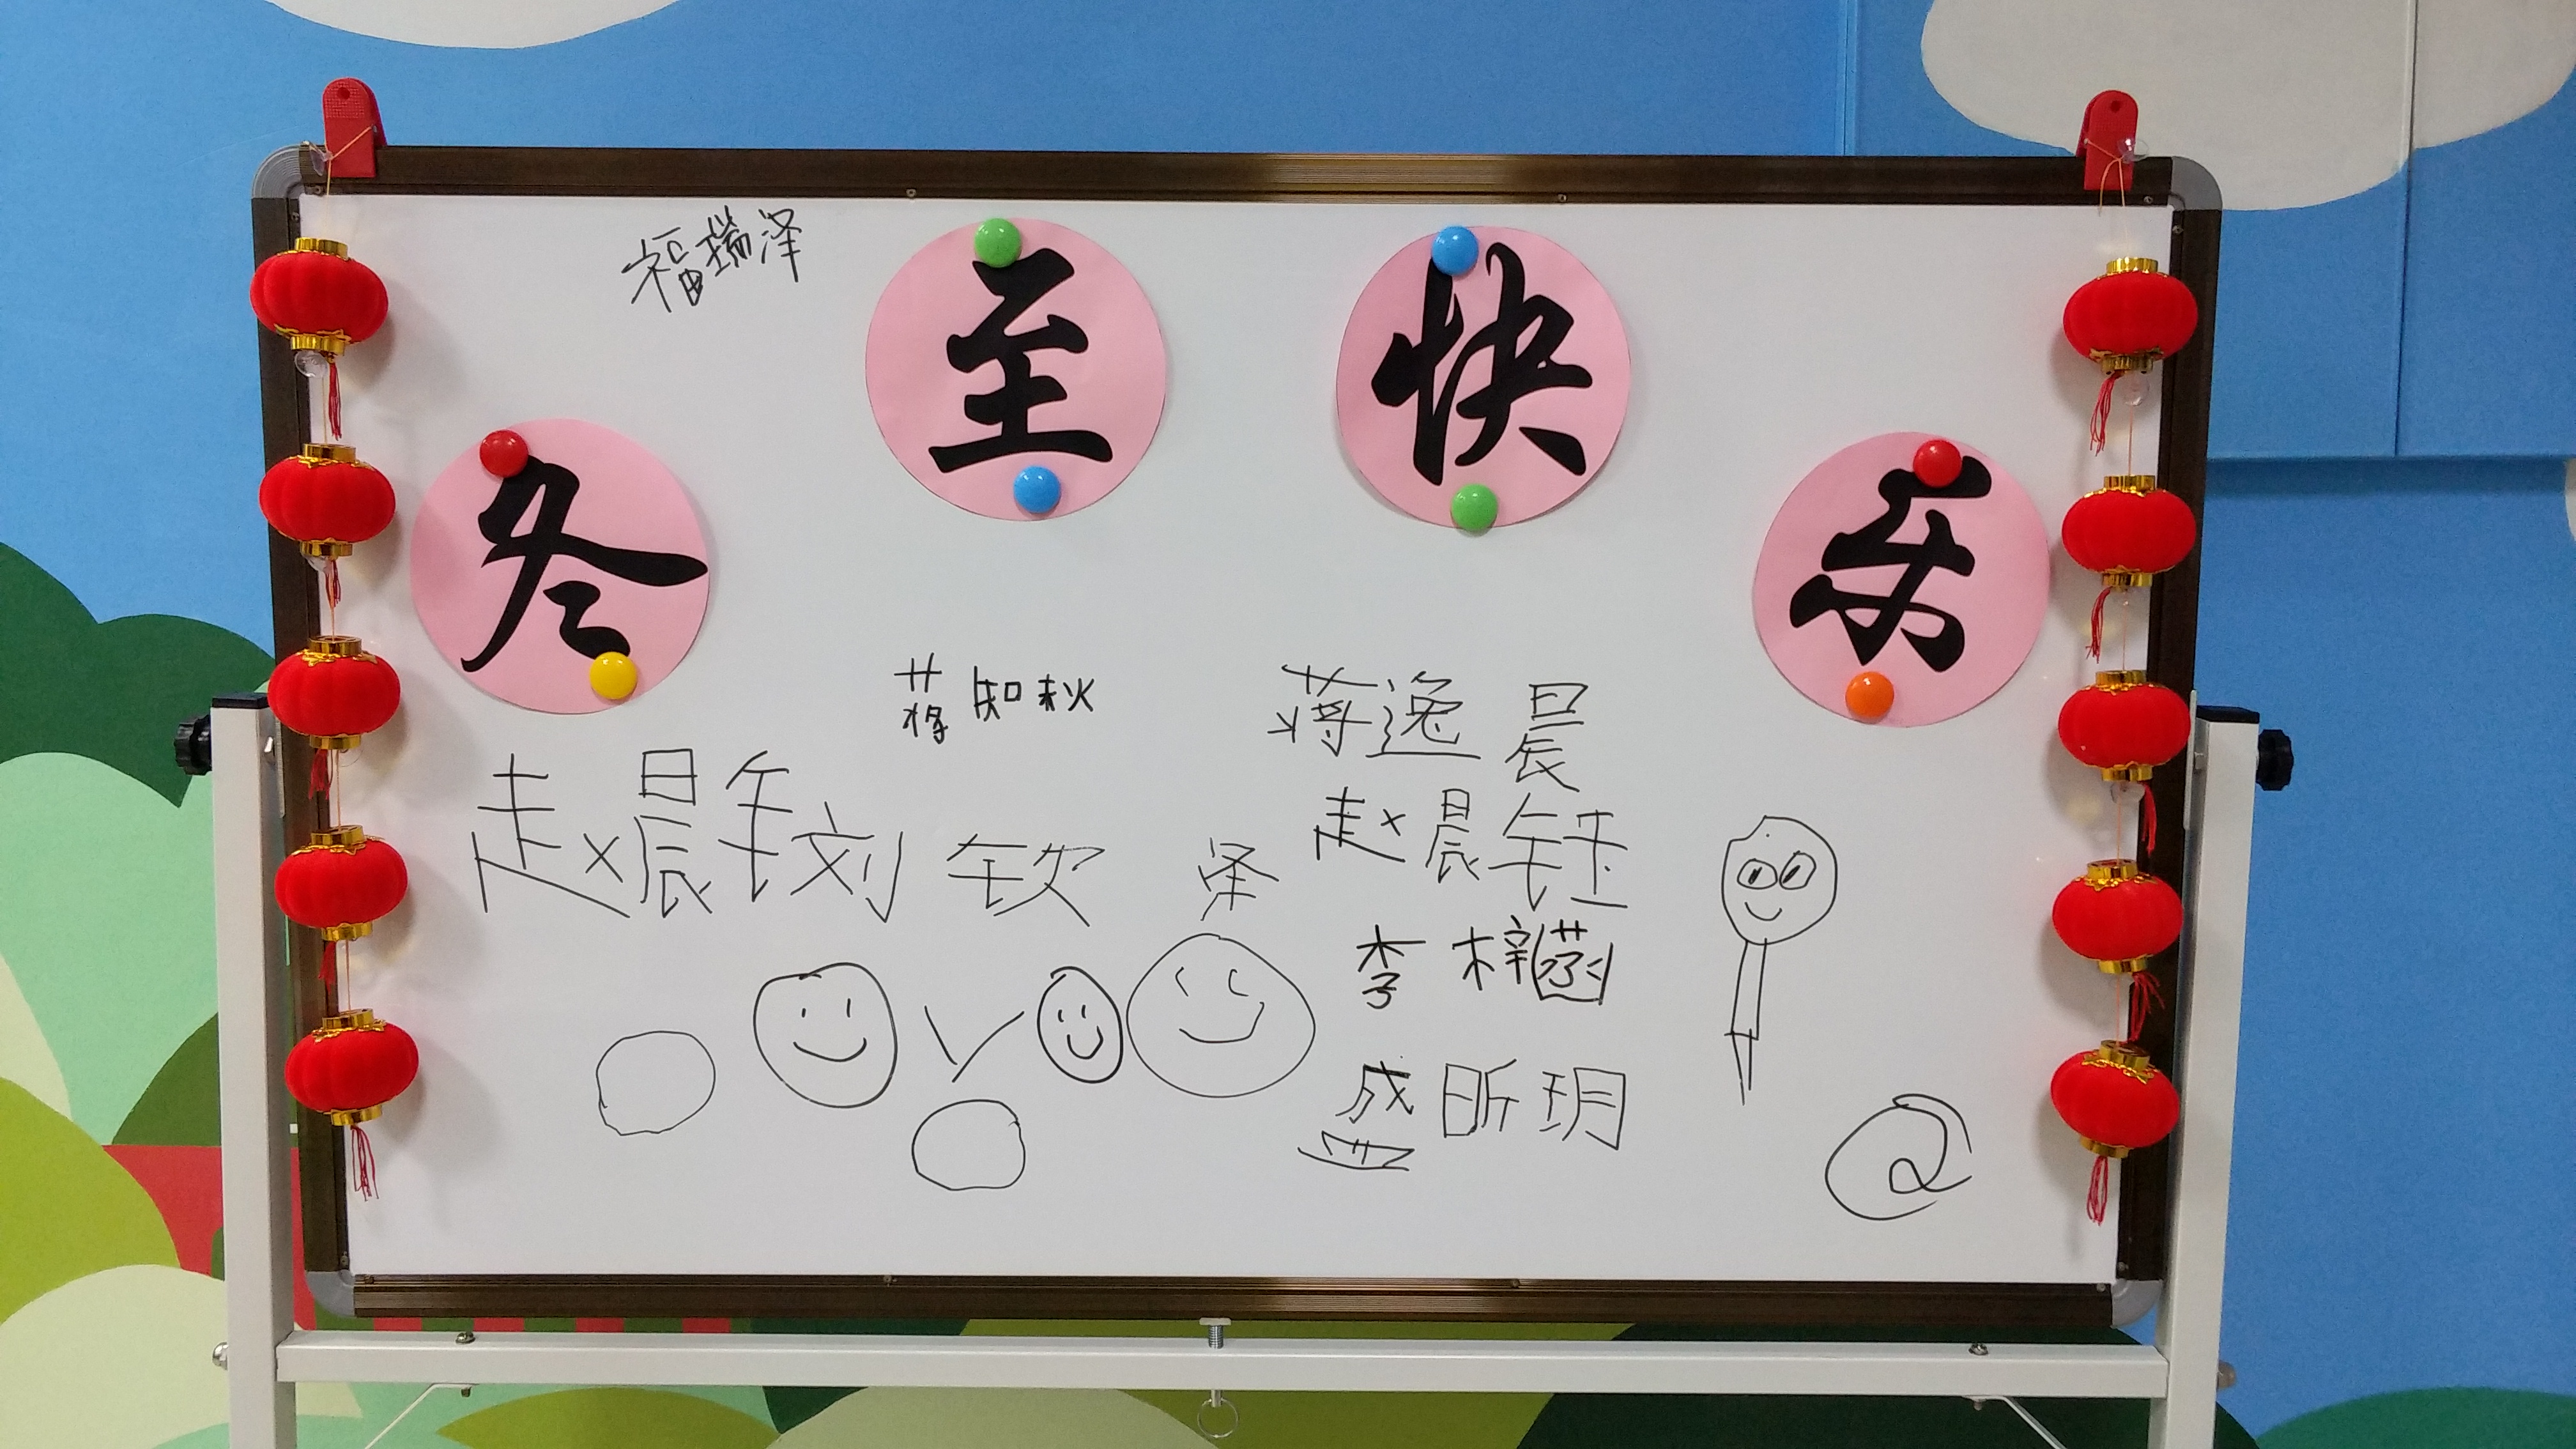 福瑞泽
冬至快乐
蒋知秋
蒋逸晨
赵晨
钦
赵晨钰
李梓菡
盛昕玥